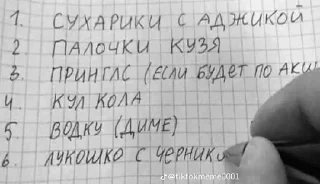 1. СУХАРИКИ С АДЖИКОЙ
2 ПАЛОЧКИ КУЗЯ
3. ПРИНГЛС (ЕСЛИ БУДЕТ ПО АКЦ
4 КУЛ КОЛА
5. ВОДКУ (ДИМЕ)
6. ЛУКОШКО С ЧЕРНИКО
@tiktokmeme0001